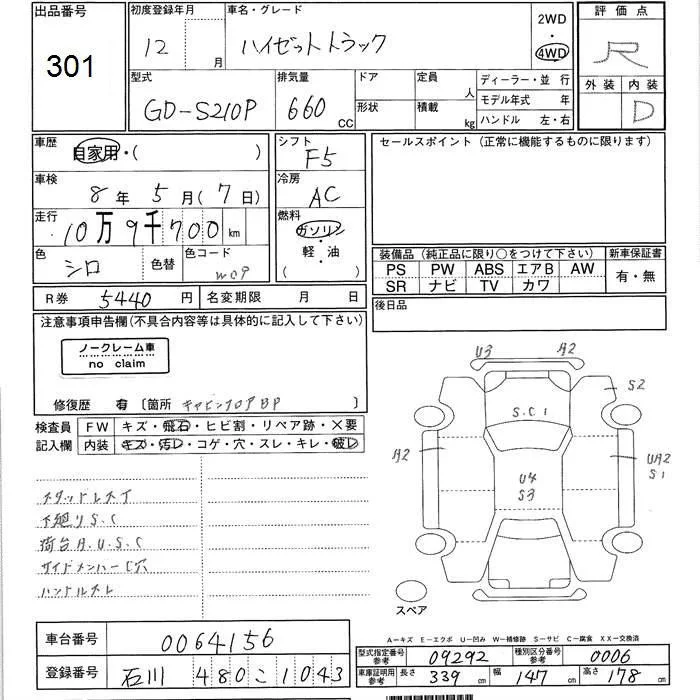 出品番号
301
初度登録年月
12 月
車名・グレード
ハイゼットトラック
2WD
・
4WD
評価点
R
外装 内装
D
型式
GD-S210P
排気量
660 CC
ドア
形状
定員 人
積載 kg
ディーラー・並 行
モデル年式 年
ハンドル 左・右
車歴
自家用・( )
車検
8 年 5 月 ( 7 日 )
走行
10万9千700 km
色
シロ
色替
色コード
W09
シフト
F5
冷房
AC
燃料
ガソリン
・
軽・油
( )
セールスポイント (正常に機能するものに限ります)
装備品 (純正品に限り○をつけて下さい)
PS PW ABS エアB AW
SR ナビ TV カワ
新車保証書
有・無
後日品
R券 5440 円
名変期限 月 日
注意事項申告欄(不具合内容等は具体的に記入して下さい)
ノークレーム車
no claim
修復歴 有 [箇所 キャビンフロアBP ]
検査員
記入欄
FW キズ・飛石・ヒビ割・リペア跡・X要
内装 キズ・汚レ・コゲ・穴・スレ・キレ・破レ
スタッドレス丁
下廻りS.C
荷台A.U.S.C
サイドメンバーC穴
ハンドルスレ
U3 A2
S2
S.C1
A2
UA2
S1
U4
S3
スペア
A-キズ E-エクボ U-凹み W-補修跡 S-サビ C-腐食 XX-交換済
車台番号 0064156
登録番号 石川 480 こ 1043
型式指定番号
参考
09292
種別区分番号
参考
0006
車庫証明用
参考
長さ 339 cm 幅 147 cm 高さ 178 cm